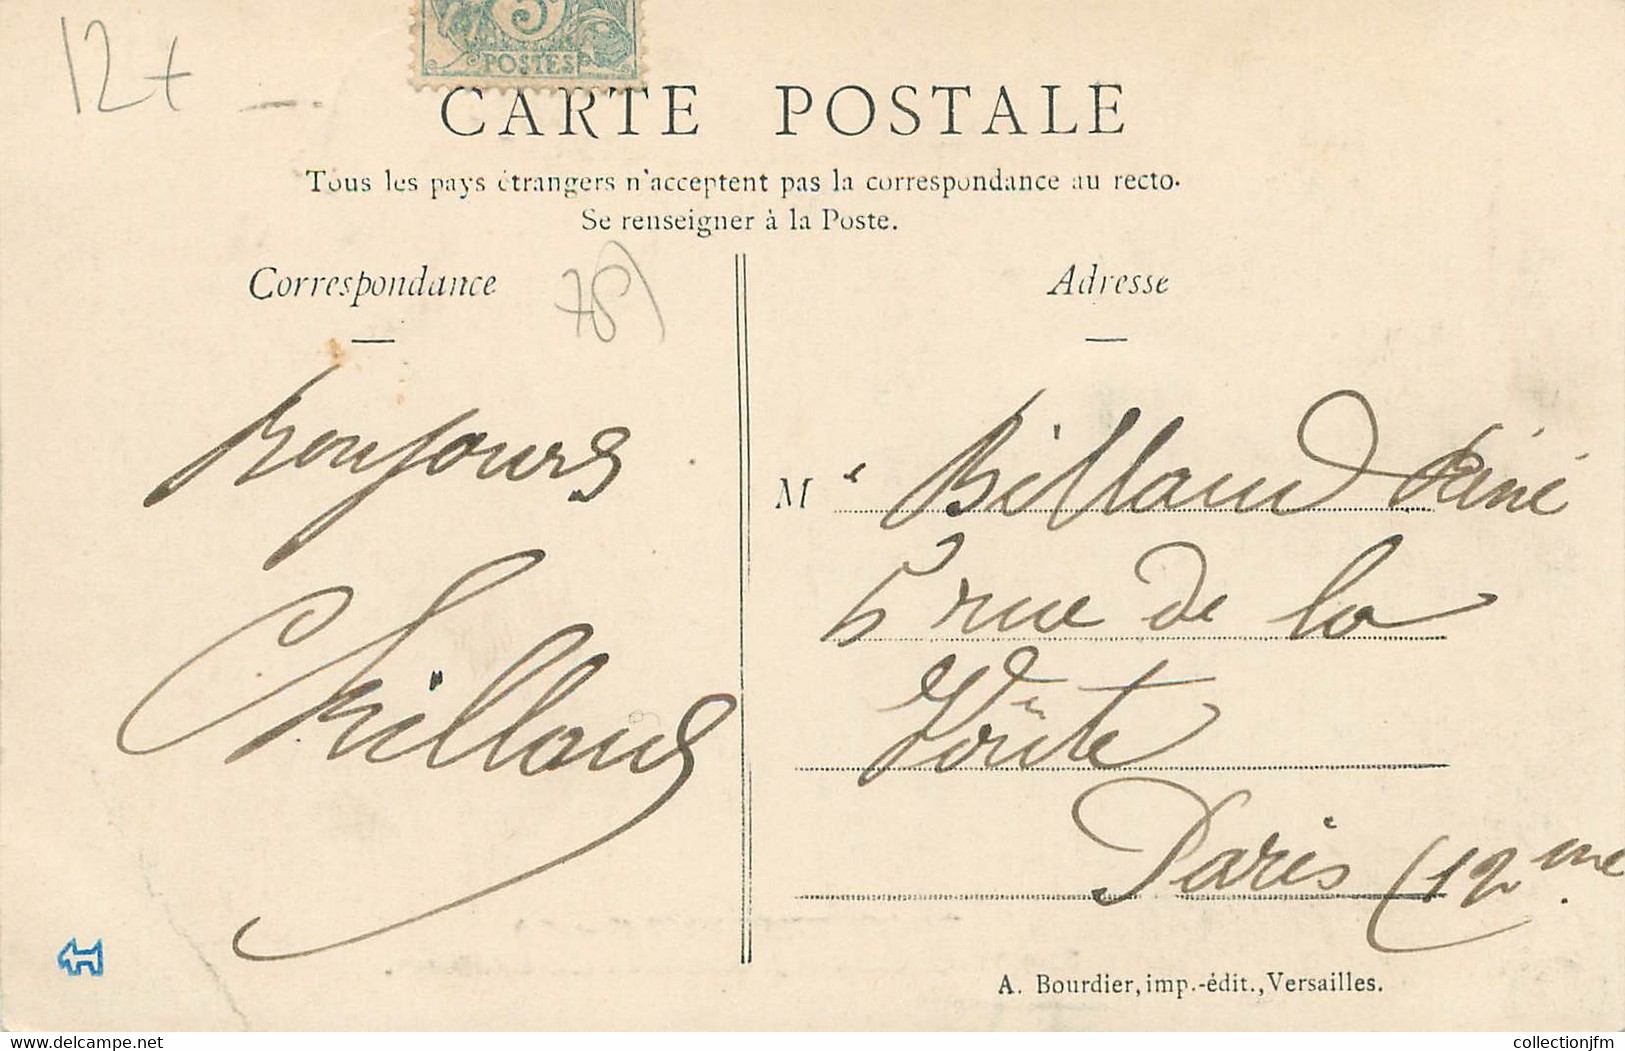 12+
5
POSTES
CARTE POSTALE
Tous les pays étrangers n'acceptent pas la correspondance au recto.
Se renseigner à la Poste.
Correspondance
78)
Bonjours
Billaud
Adresse
Mr Billaud René
5 rue de la
Voûte
Paris (12me
A. Bourdier, imp.-édit., Versailles.
https://www.delcampe.net
collectionjfm